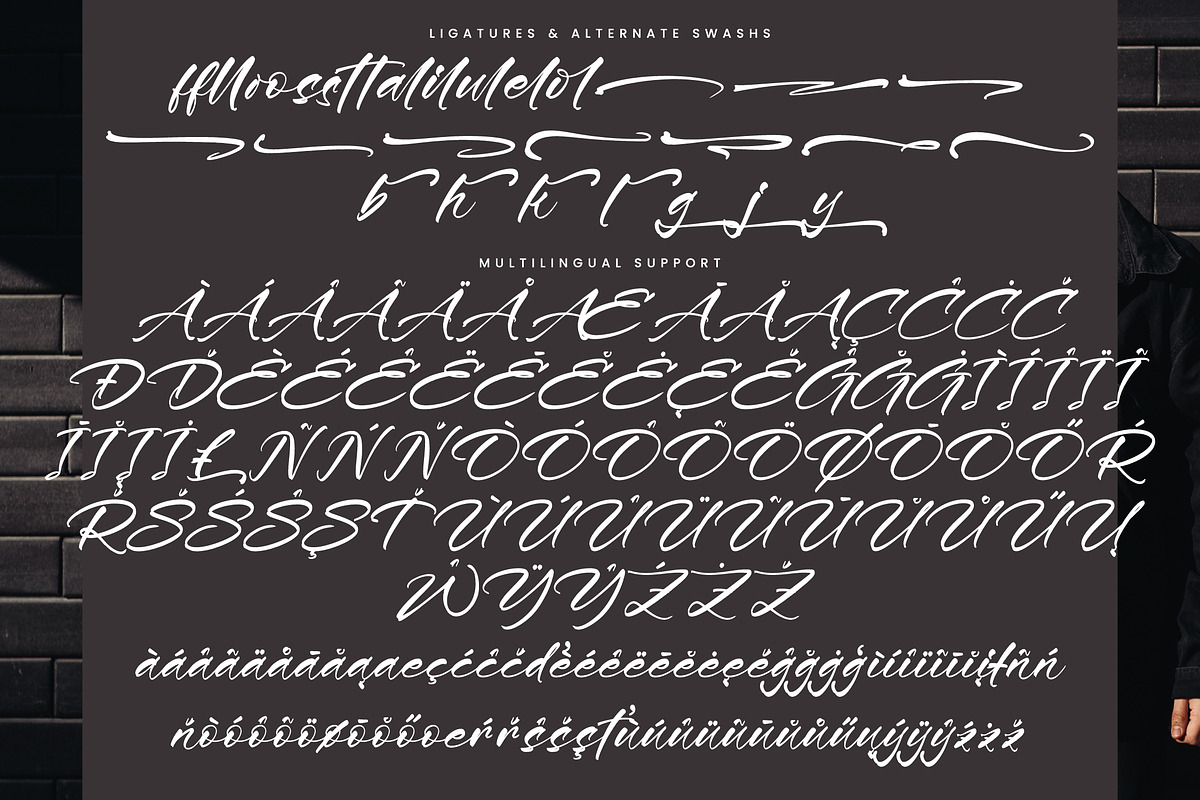 LIGATURES & ALTERNATE SWASHS
ffNoossttalilulelol
b h k l g j y
MULTILINGUAL SUPPORT
ÀÁÂÃÄÅÆĀĂĄÇĆĈĊČ
ĐĎÈÉÊËĒĔĖĘĚĜĞĠÌÍÎÏĨ
ĪĬĮİŁÑŃŇÒÓÔÕÖØŌŎŐŔ
ŘŠŚŜŞŤÙÚÛÜŨŪŬŮŰŲ
ŴŸŶŹŻŽ
àáâãäåāăąæçćĉċčďèéêëēĕėęěĝğġģìíîïĩīĭįłñń
ňòóôõöøōŏőœŕřšśŝşťùúûüũūŭůűųýÿŷźżž